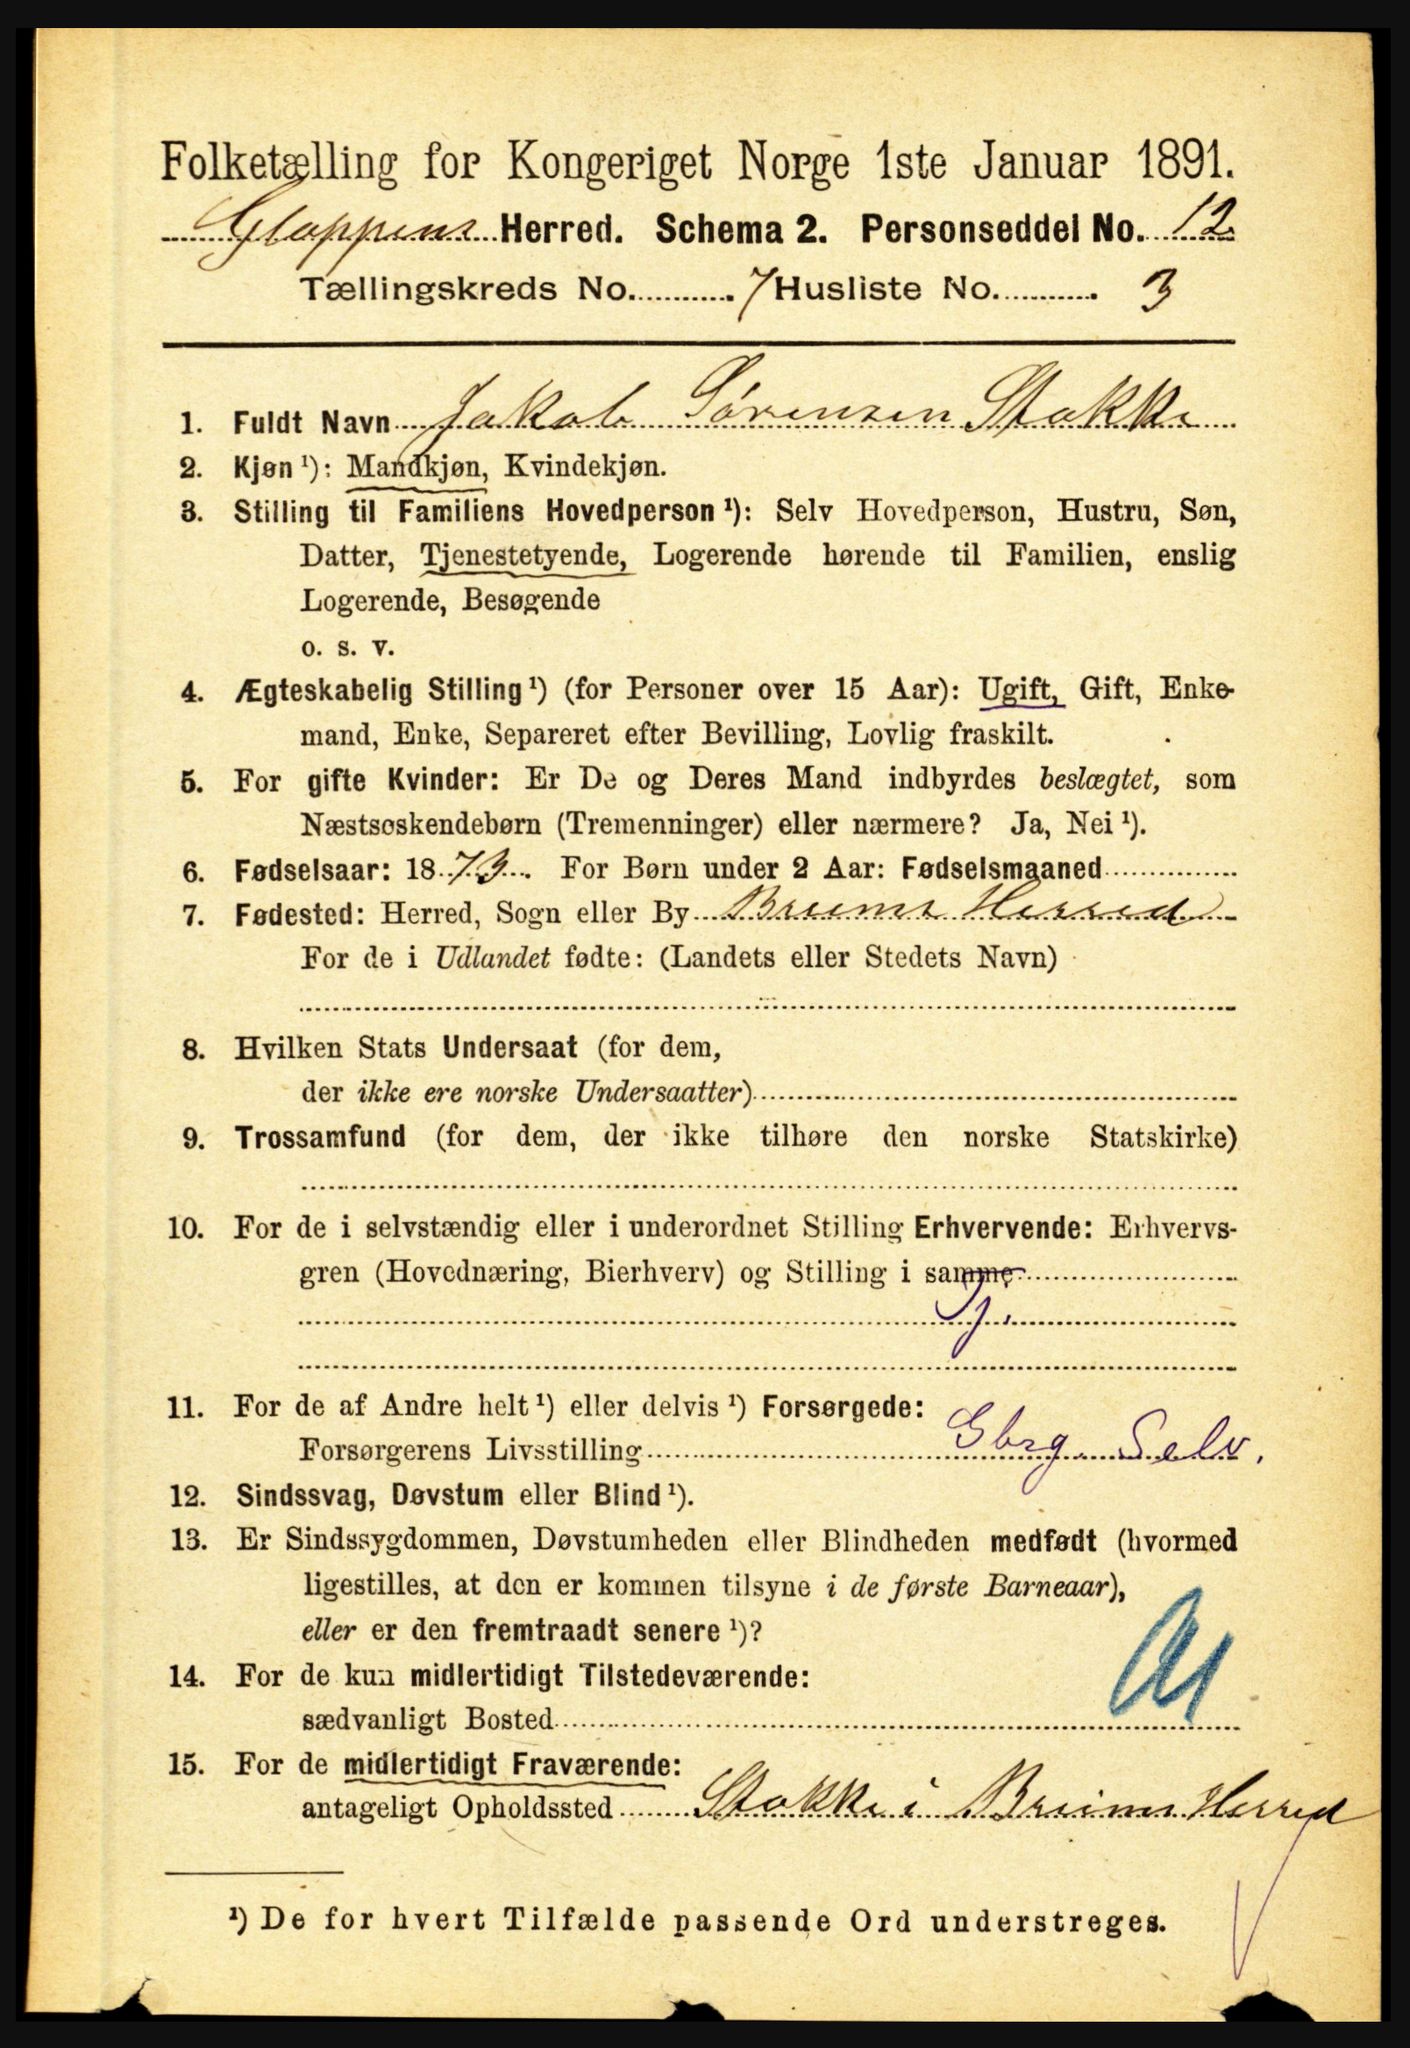 Folketælling for Kongeriget Norge 1ste Januar 1891.
Gloppens Herred. Schema 2. Personseddel No. 12.
Tællingskreds No. 7 Husliste No. 3
1. Fuldt Navn Jakob Sørensen Stokke
2. Kjøn ¹): Mandkjøn, Kvindekjøn.
3. Stilling til Familiens Hovedperson ¹): Selv Hovedperson, Hustru, Søn,
Datter, Tjenestetyende, Logerende hørende til Familien, enslig
Logerende, Besøgende
o. s. v.
4. Ægteskabelig Stilling ¹) (for Personer over 15 Aar): Ugift, Gift, Enke-
mand, Enke, Separeret efter Bevilling, Lovlig fraskilt.
5. For gifte Kvinder: Er De og Deres Mand indbyrdes beslægtet, som
Næstsøskendebørn (Tremenninger) eller nærmere? Ja, Nei ¹).
6. Fødselsaar: 1873. For Børn under 2 Aar: Fødselsmaaned
7. Fødested: Herred, Sogn eller By Breims Herred
For de i Udlandet fødte: (Landets eller Stedets Navn)
8. Hvilken Stats Undersaat (for dem,
der ikke ere norske Undersaatter)
9. Trossamfund (for dem, der ikke tilhøre den norske Statskirke)
10. For de i selvstændig eller i underordnet Stilling Erhvervende: Erhvervs-
gren (Hovednæring, Bierhverv) og Stilling i samme
Tj.
11. For de af Andre helt ¹) eller delvis ¹) Forsørgede:
Forsørgerens Livsstilling Gbrg. Selv.
12. Sindssvag, Døvstum eller Blind ¹).
13. Er Sindssygdommen, Døvstumheden eller Blindheden medfødt (hvormed
ligestilles, at den er kommen tilsyne i de første Barneaar),
eller er den fremtraadt senere ¹)?
14. For de kun midlertidigt Tilstedeværende:
sædvanligt Bosted
15. For de midlertidigt Fraværende:
antageligt Opholdssted Stokke i Breims Herred
¹) De for hvert Tilfælde passende Ord understreges.